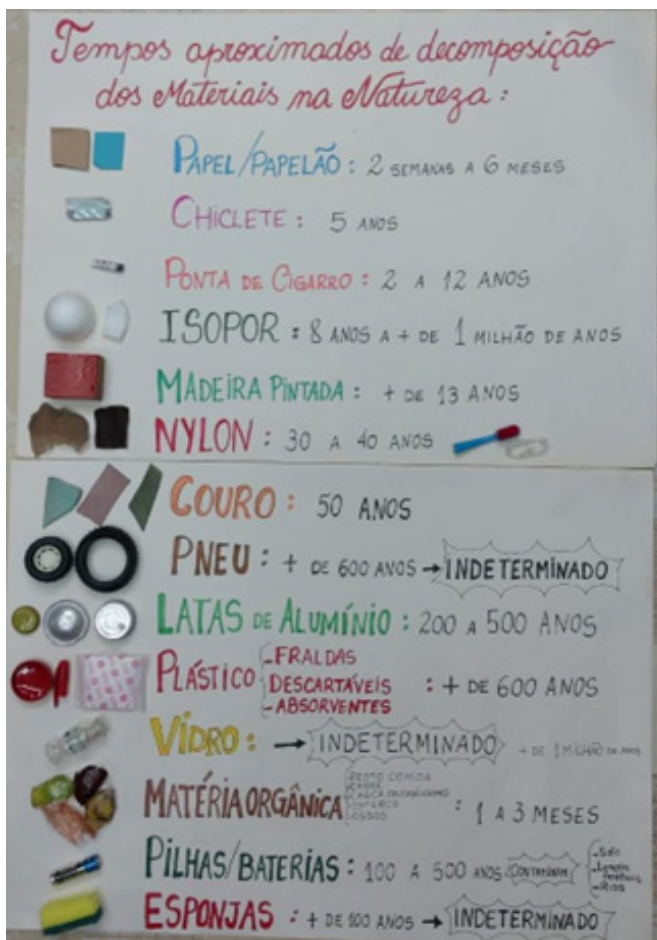 Tempos aproximados de decomposição
dos Materiais na Natureza:
PAPEL/PAPELÃO: 2 SEMANAS A 6 MESES
CHICLETE: 5 ANOS
PONTA DE CIGARRO: 2 A 12 ANOS
ISOPOR: 8 ANOS A + DE 1 MILHÃO DE ANOS
MADEIRA PINTADA: + DE 13 ANOS
NYLON: 30 A 40 ANOS
COURO: 50 ANOS
PNEU: + DE 600 ANOS → INDETERMINADO
LATAS DE ALUMÍNIO: 200 A 500 ANOS
PLÁSTICO - FRALDAS
DESCARTÁVEIS : + DE 600 ANOS
- ABSORVENTES
VIDRO: → INDETERMINADO + DE 1 MILHÃO DE ANOS
RESTO COMIDA
MATÉRIA ORGÂNICA : 1 A 3 MESES
ESTERCO
PILHAS/BATERIAS: 100 A 500 ANOS CONTAMINAM - Solo
- Rios
ESPONJAS: + DE 100 ANOS → INDETERMINADO